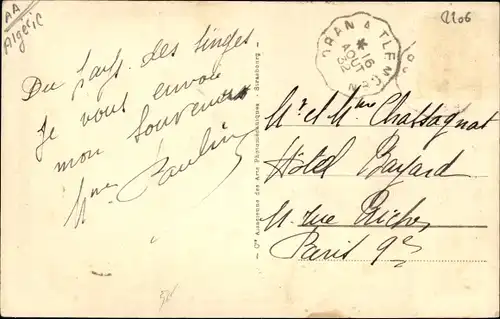 AA
Algérie
2206
ORAN A TLEMCEN
* 16
AOUT
32
Du Pays des Singes
Je vous envoie
mon Souvenir
Mme Paulin
Cie Alsacienne des Arts Photomécaniques - Strasbourg
Mr et Mme Chassagnat
Hôtel Bayard
rue Richer
Paris 9e